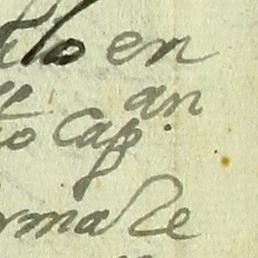 lo en
to Cap.an
rmase